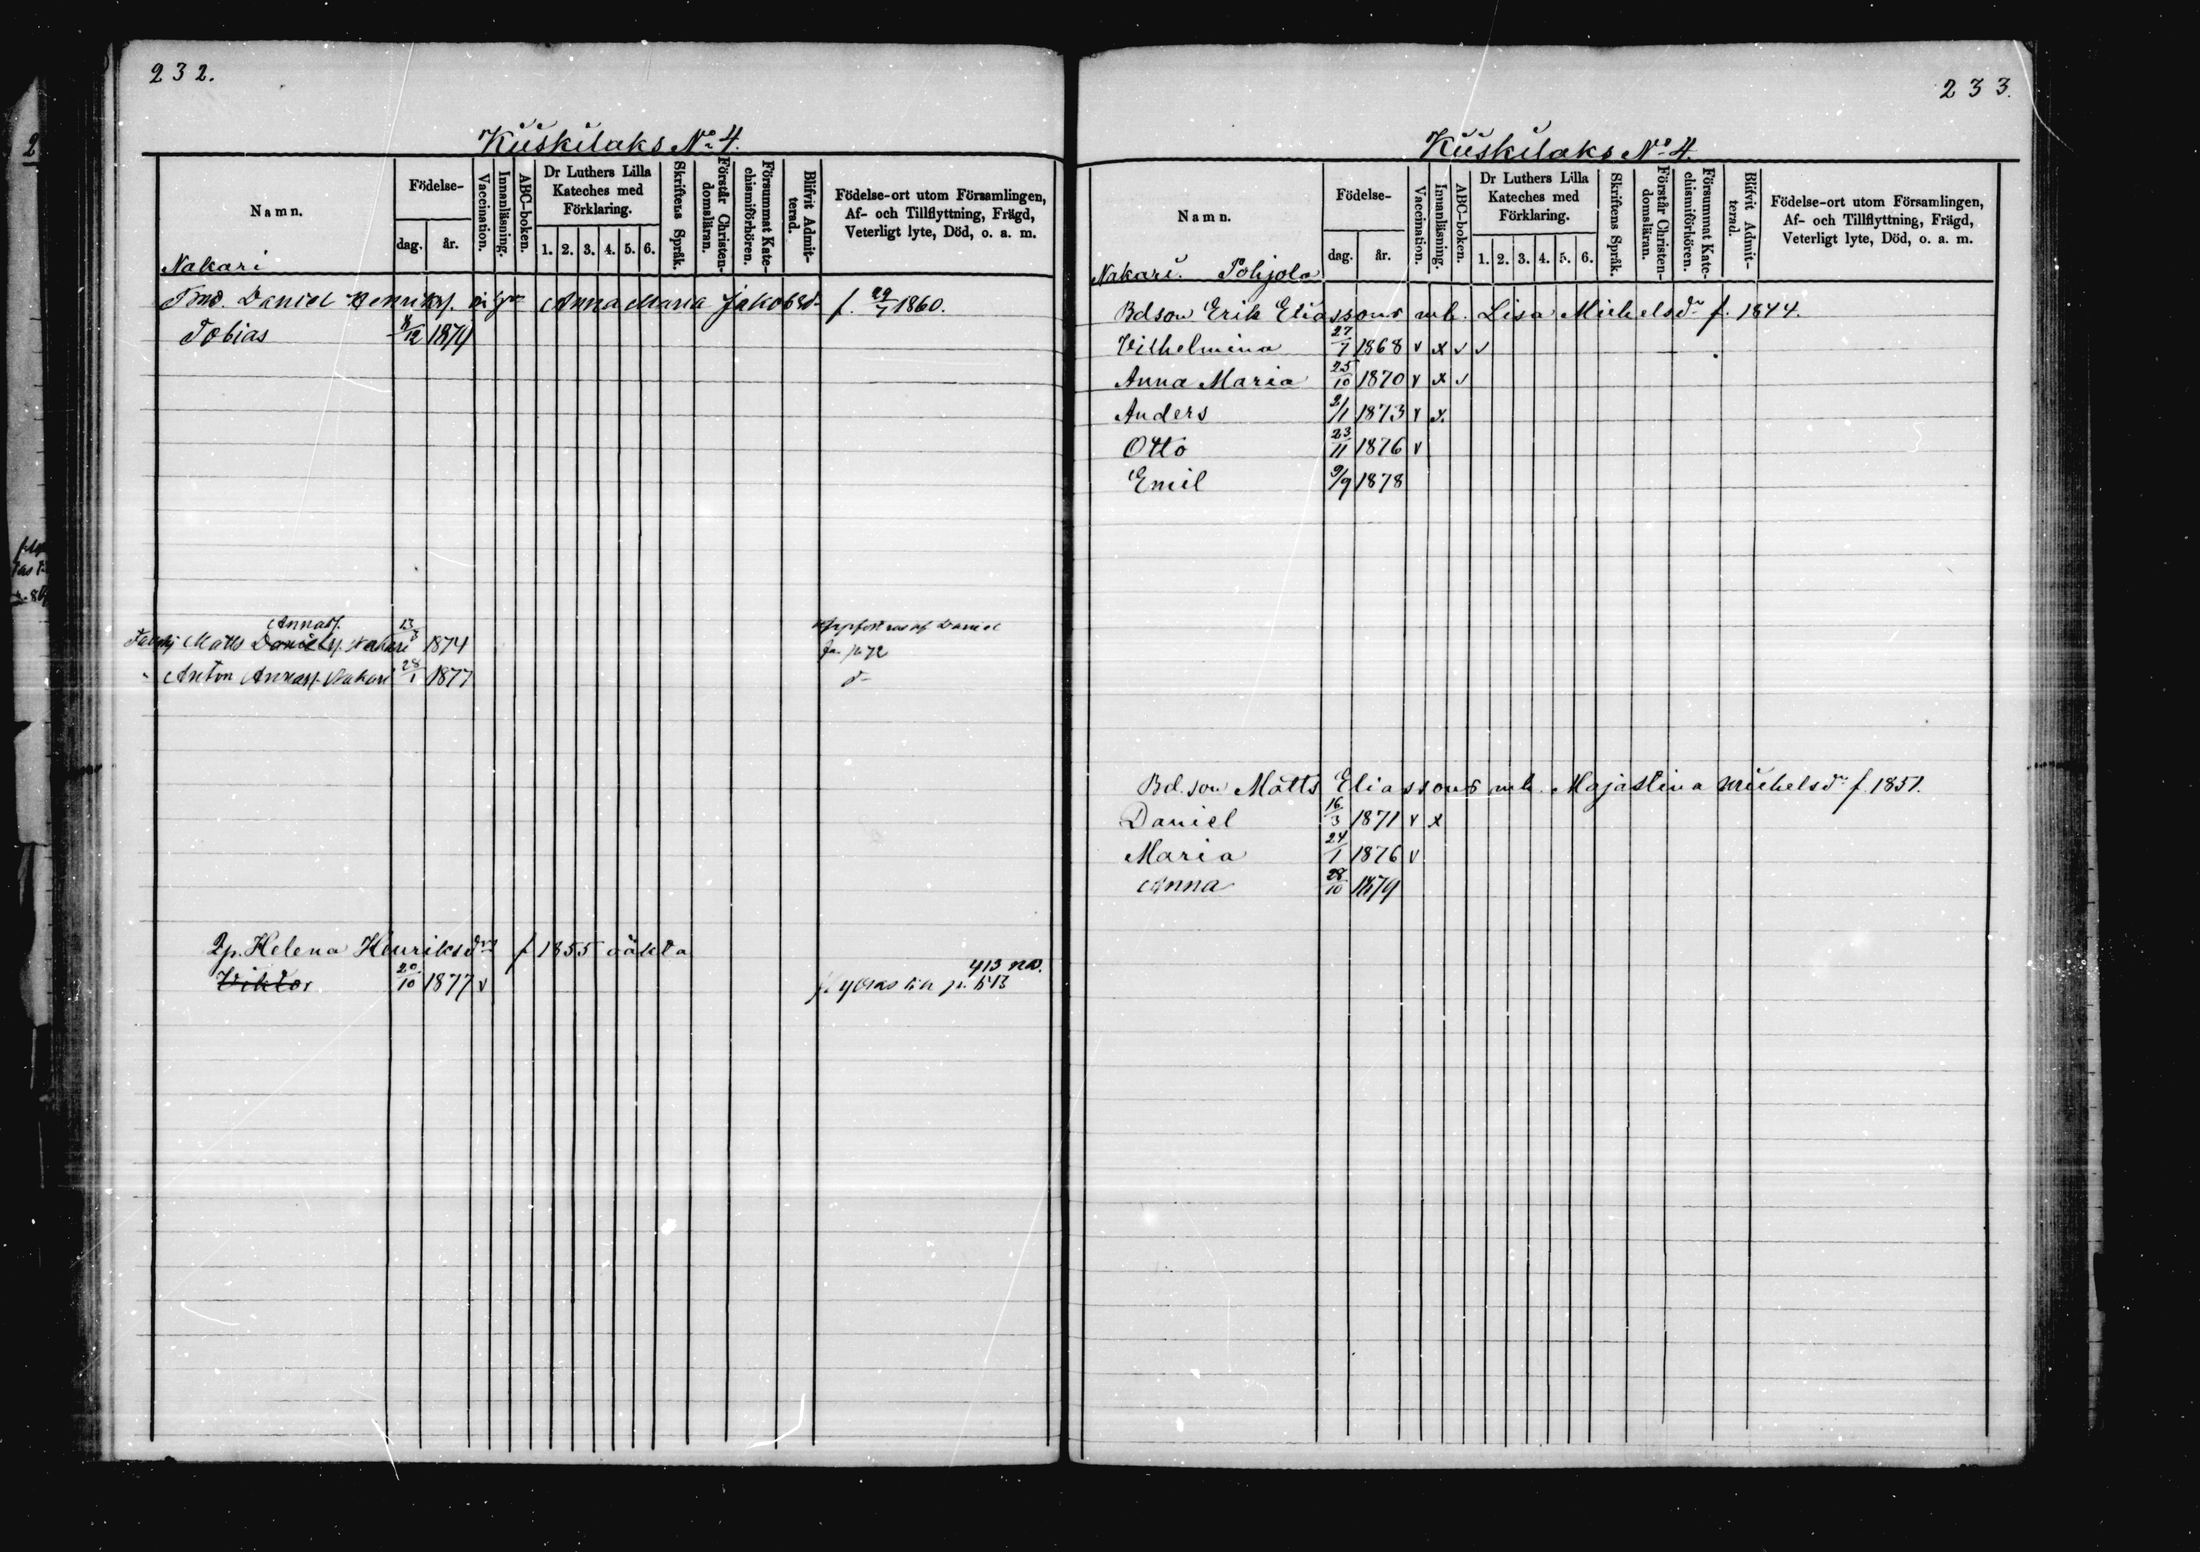 232.
Kuuskilaks No 4.
Namn.
Födelse-
dag.
år.
Vaccination.
Innanläsning.
ABC-boken.
Dr Luthers Lilla
Kateches med
Förklaring.
1. 2. 3. 4. 5. 6.
Skriftens Språk.
Förstår Christen-
domsläran.
Försummat Kate-
chismiförhören.
Blifvit Admit-
terad.
Födelse-ort utom Församlingen,
Af- och Tillflyttning, Frägd,
Veterligt lyte, Död, o. a. m.
Nakari
Daniel Henriks. Anna Maria Jakobsdr f. 29/7 1860.
Tobias 8/12 1879
Annas.
Matts Daniels. Nakari 13/ 1874 uppfostras af Daniel
p. 72
Anton Annas. Nakari 28/1 1877
Helena Henriksdrs f 1855 oäkta
413 no.
Viktor 20/10 1877 v p. 513
233.
Kuuskilaks No 4.
Namn.
Födelse-
dag.
år.
Vaccination.
Innanläsning.
ABC-boken.
Dr Luthers Lilla
Kateches med
Förklaring.
1. 2. 3. 4. 5. 6.
Skriftens Språk.
Förstår Christen-
domsläran.
Försummat Kate-
chismiförhören.
Blifvit Admit-
terad.
Födelse-ort utom Församlingen,
Af- och Tillflyttning, Frägd,
Veterligt lyte, Död, o. a. m.
Nakari. Pohjola
Bdson Erik Eliassons mh. Lisa Michelsdr f. 1844.
Vilhelmina 27/7 1868 v x v v
Anna Maria 25/10 1870 v x v
Anders 2/1 1873 v x.
Otto 23/11 1876 v
Emil 9/9 1878
Bd.son Matts Eliassons mh. Majastina Michelsdr f. 1851.
Daniel 16/3 1871 v x
Maria 24/1 1876 v
Anna 28/10 1879